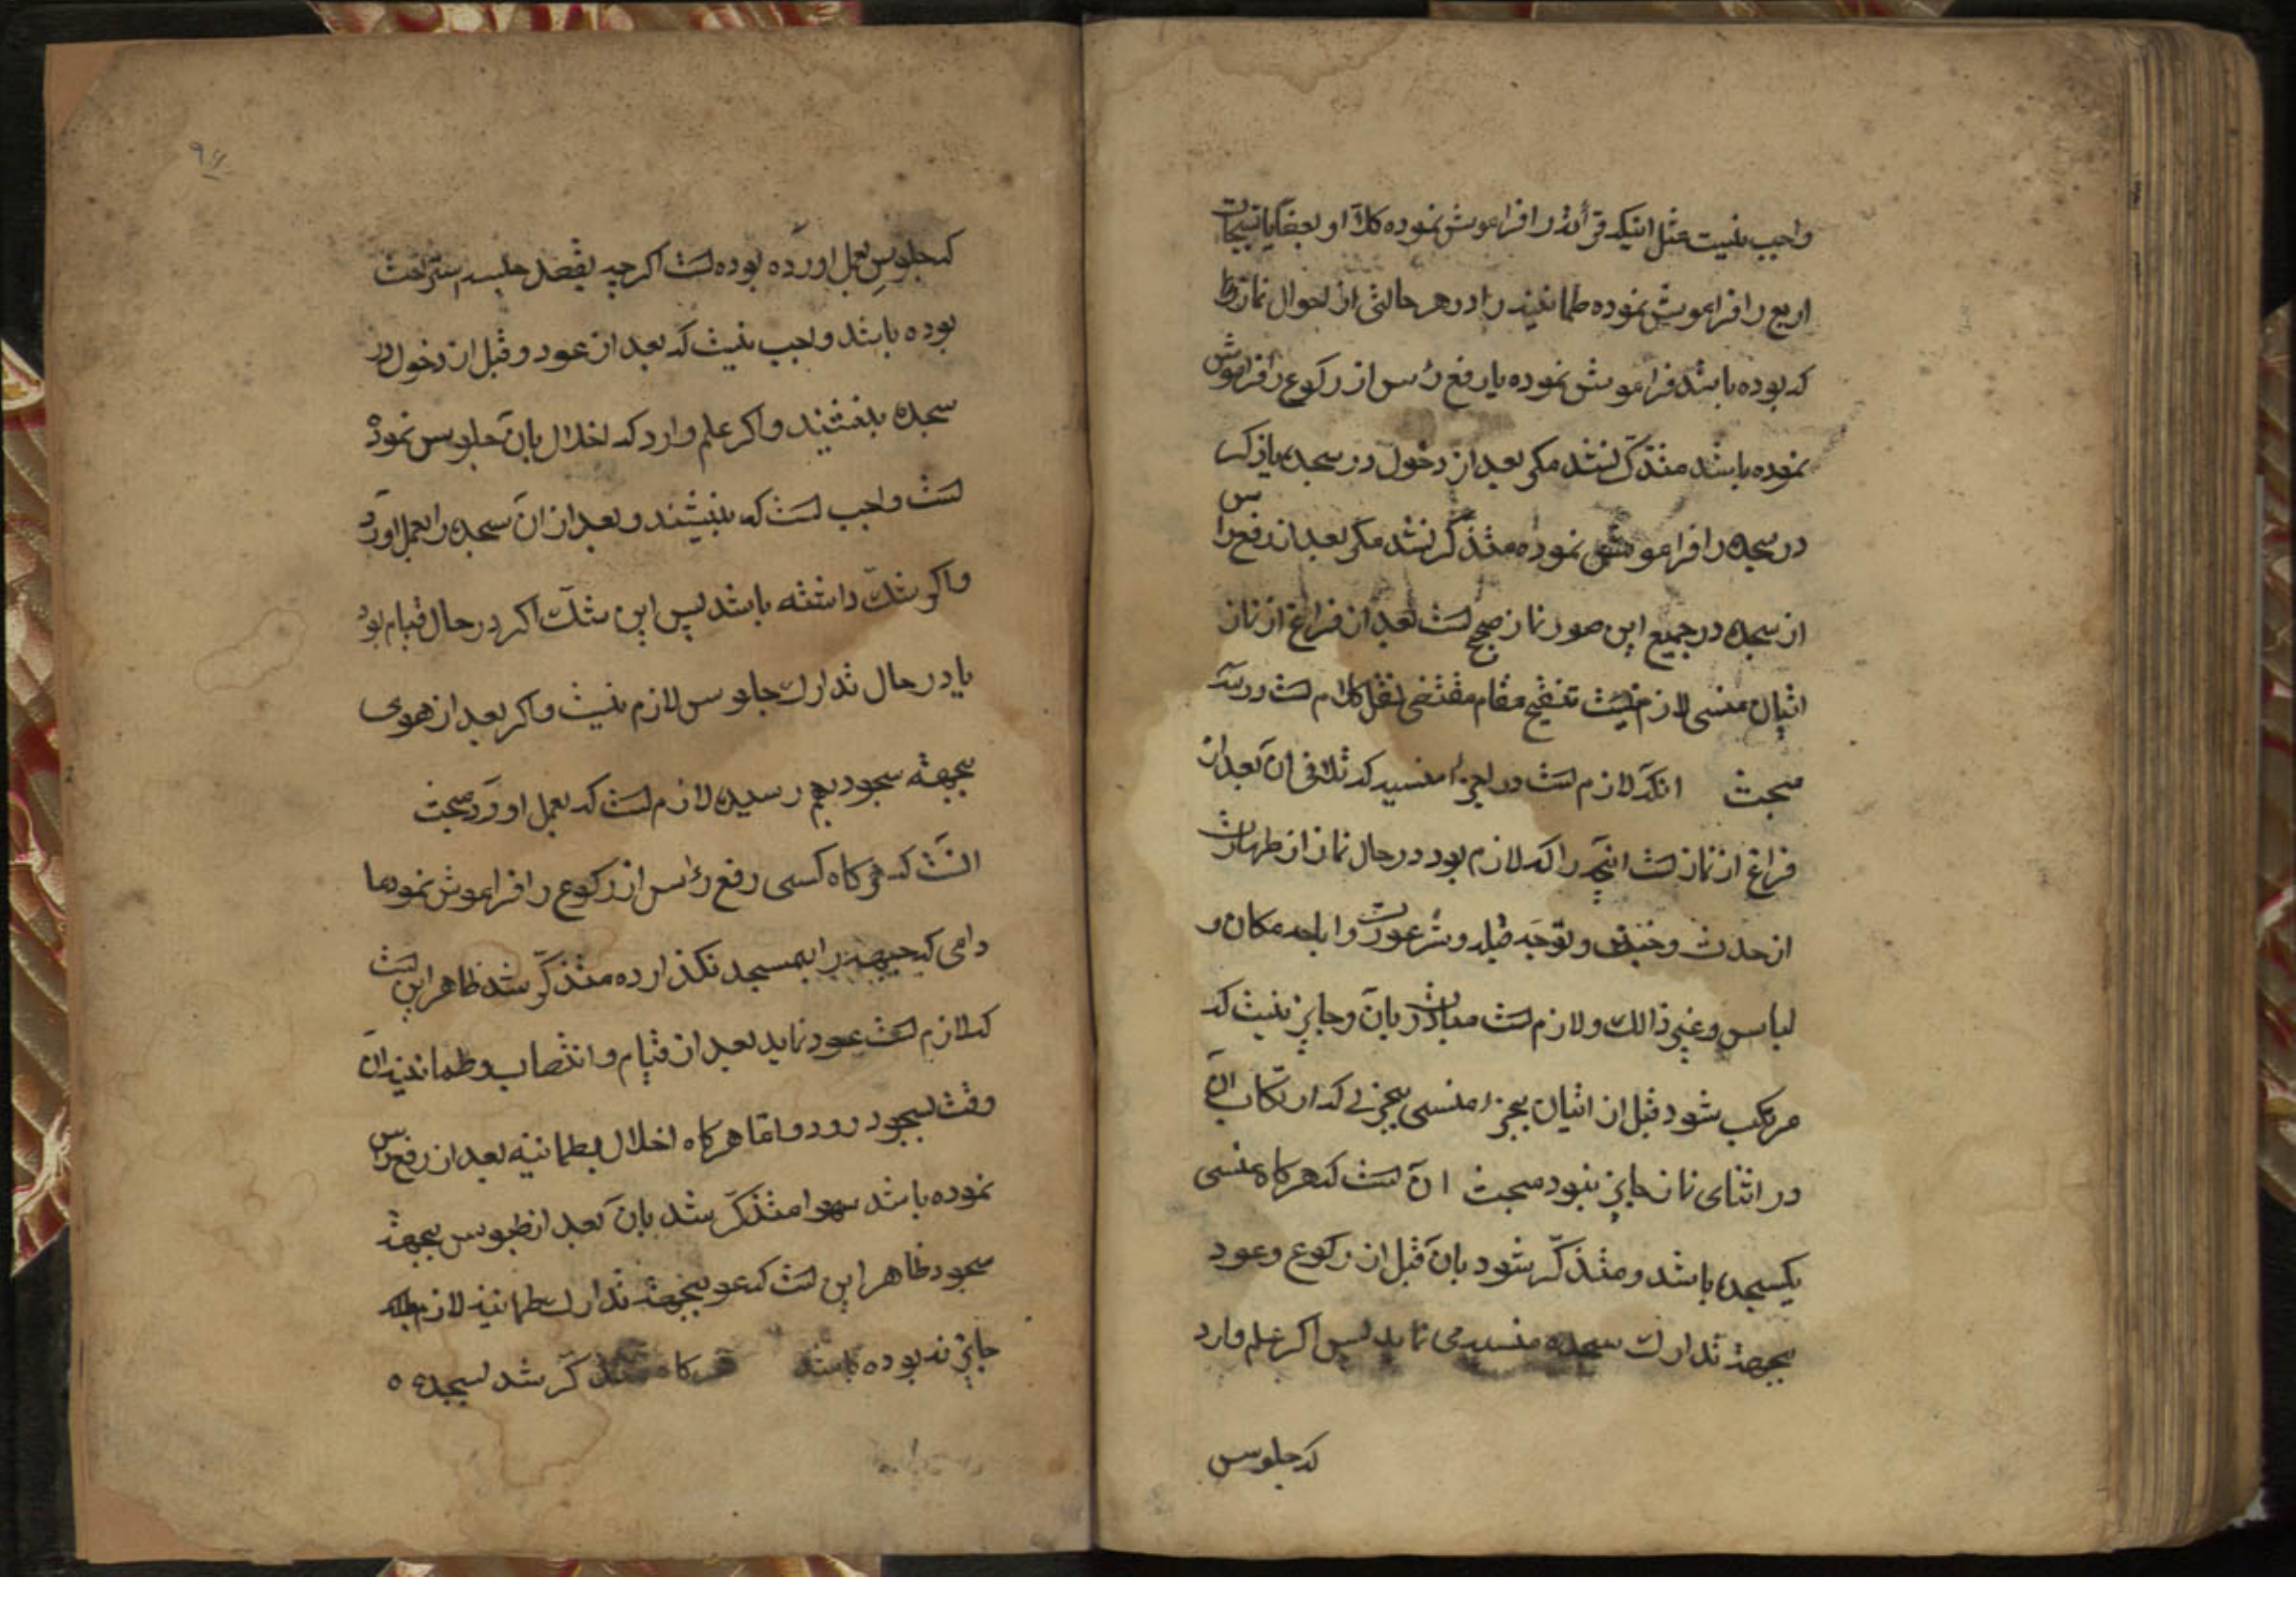 واجب نیست مثل اینکه قرائة را فراموش نموده کلاّ او بعضا یا تسبیحات
اربع را فراموش نموده طمانینه را در هر حالتی از احوال نماز
که بوده باشد فراموش نموده یا رفع رأس از رکوع را فراموش
نموده باشد متذکّر نشد مکر بعد از دخول در سجده یا ذکر
در سجده را فراموش نموده متذکّر نشد مکر بعد از رفع راس
از سجده در جمیع این صور نماز صحیح است بعد از فراغ از نماز
اتیان منسی لازم نیست تنقیح مقام مقتضی نقل کلام است در سه
مبحث انکه لازم است در اجزاء منسیه که تلافی ان بعد از
فراغ از نماز است انچه را که لازم بود در حال نماز از طهارت
از حدث و خبث و توجه قبله و ستر عورت و اباحه مکان و
لباس و غیر ذالک و لازم است مبادرت بان و جایز نیست که
مرتکب شود قبل از اتیان بجزء منسی بچیزی که ارتکاب ان
در اثنای نماز جایز نبود مبحث ان است که هرکاه منسی
یکسجده باشد و متذکّر شود بان قبل از رکوع و عود
بجهة تدارک سجده منسیه می نماید پس اکر علم دارد
که جلوس
۹۴
که جلوس بعمل اورده بوده است اکرچه بقصد جلسه استراحت
بوده باشد واجب نیست که بعد از عود و قبل از دخول در
سجده بنشیند و اکر علم دارد که اخلال بان جلوس نموده
است واجب است که بنشیند و بعد از ان سجده را بعمل اورد
و اکر شکّ داشته باشد پس این شکّ اکر در حال قیام بود
یا در حال تدارک جلوس لازم نیست و اکر بعد از هوی
بجهته سجود بهم رسیده لازم است که بعمل اورد مبحث
انست که هرکاه کسی رفع رأس از رکوع را فراموش نمود ما
دامی که جبهه را بمسجد نکذارده متذکّر شد ظاهر این است
که لازم است عود نماید بعد از قیام و انتصاب و طمانینه ان
وقت بسجود رود و امّا هرکاه اخلال بطمانینه بعد از رفع راس
نموده باشد سهوا متذکّر شد بان بعد از جلوس بجهة
سجود ظاهر این است که عود بجهة تدارک طمانینه لازم بلکه
جایز نه بوده باشد هرکاه متذکّر شد بسجده